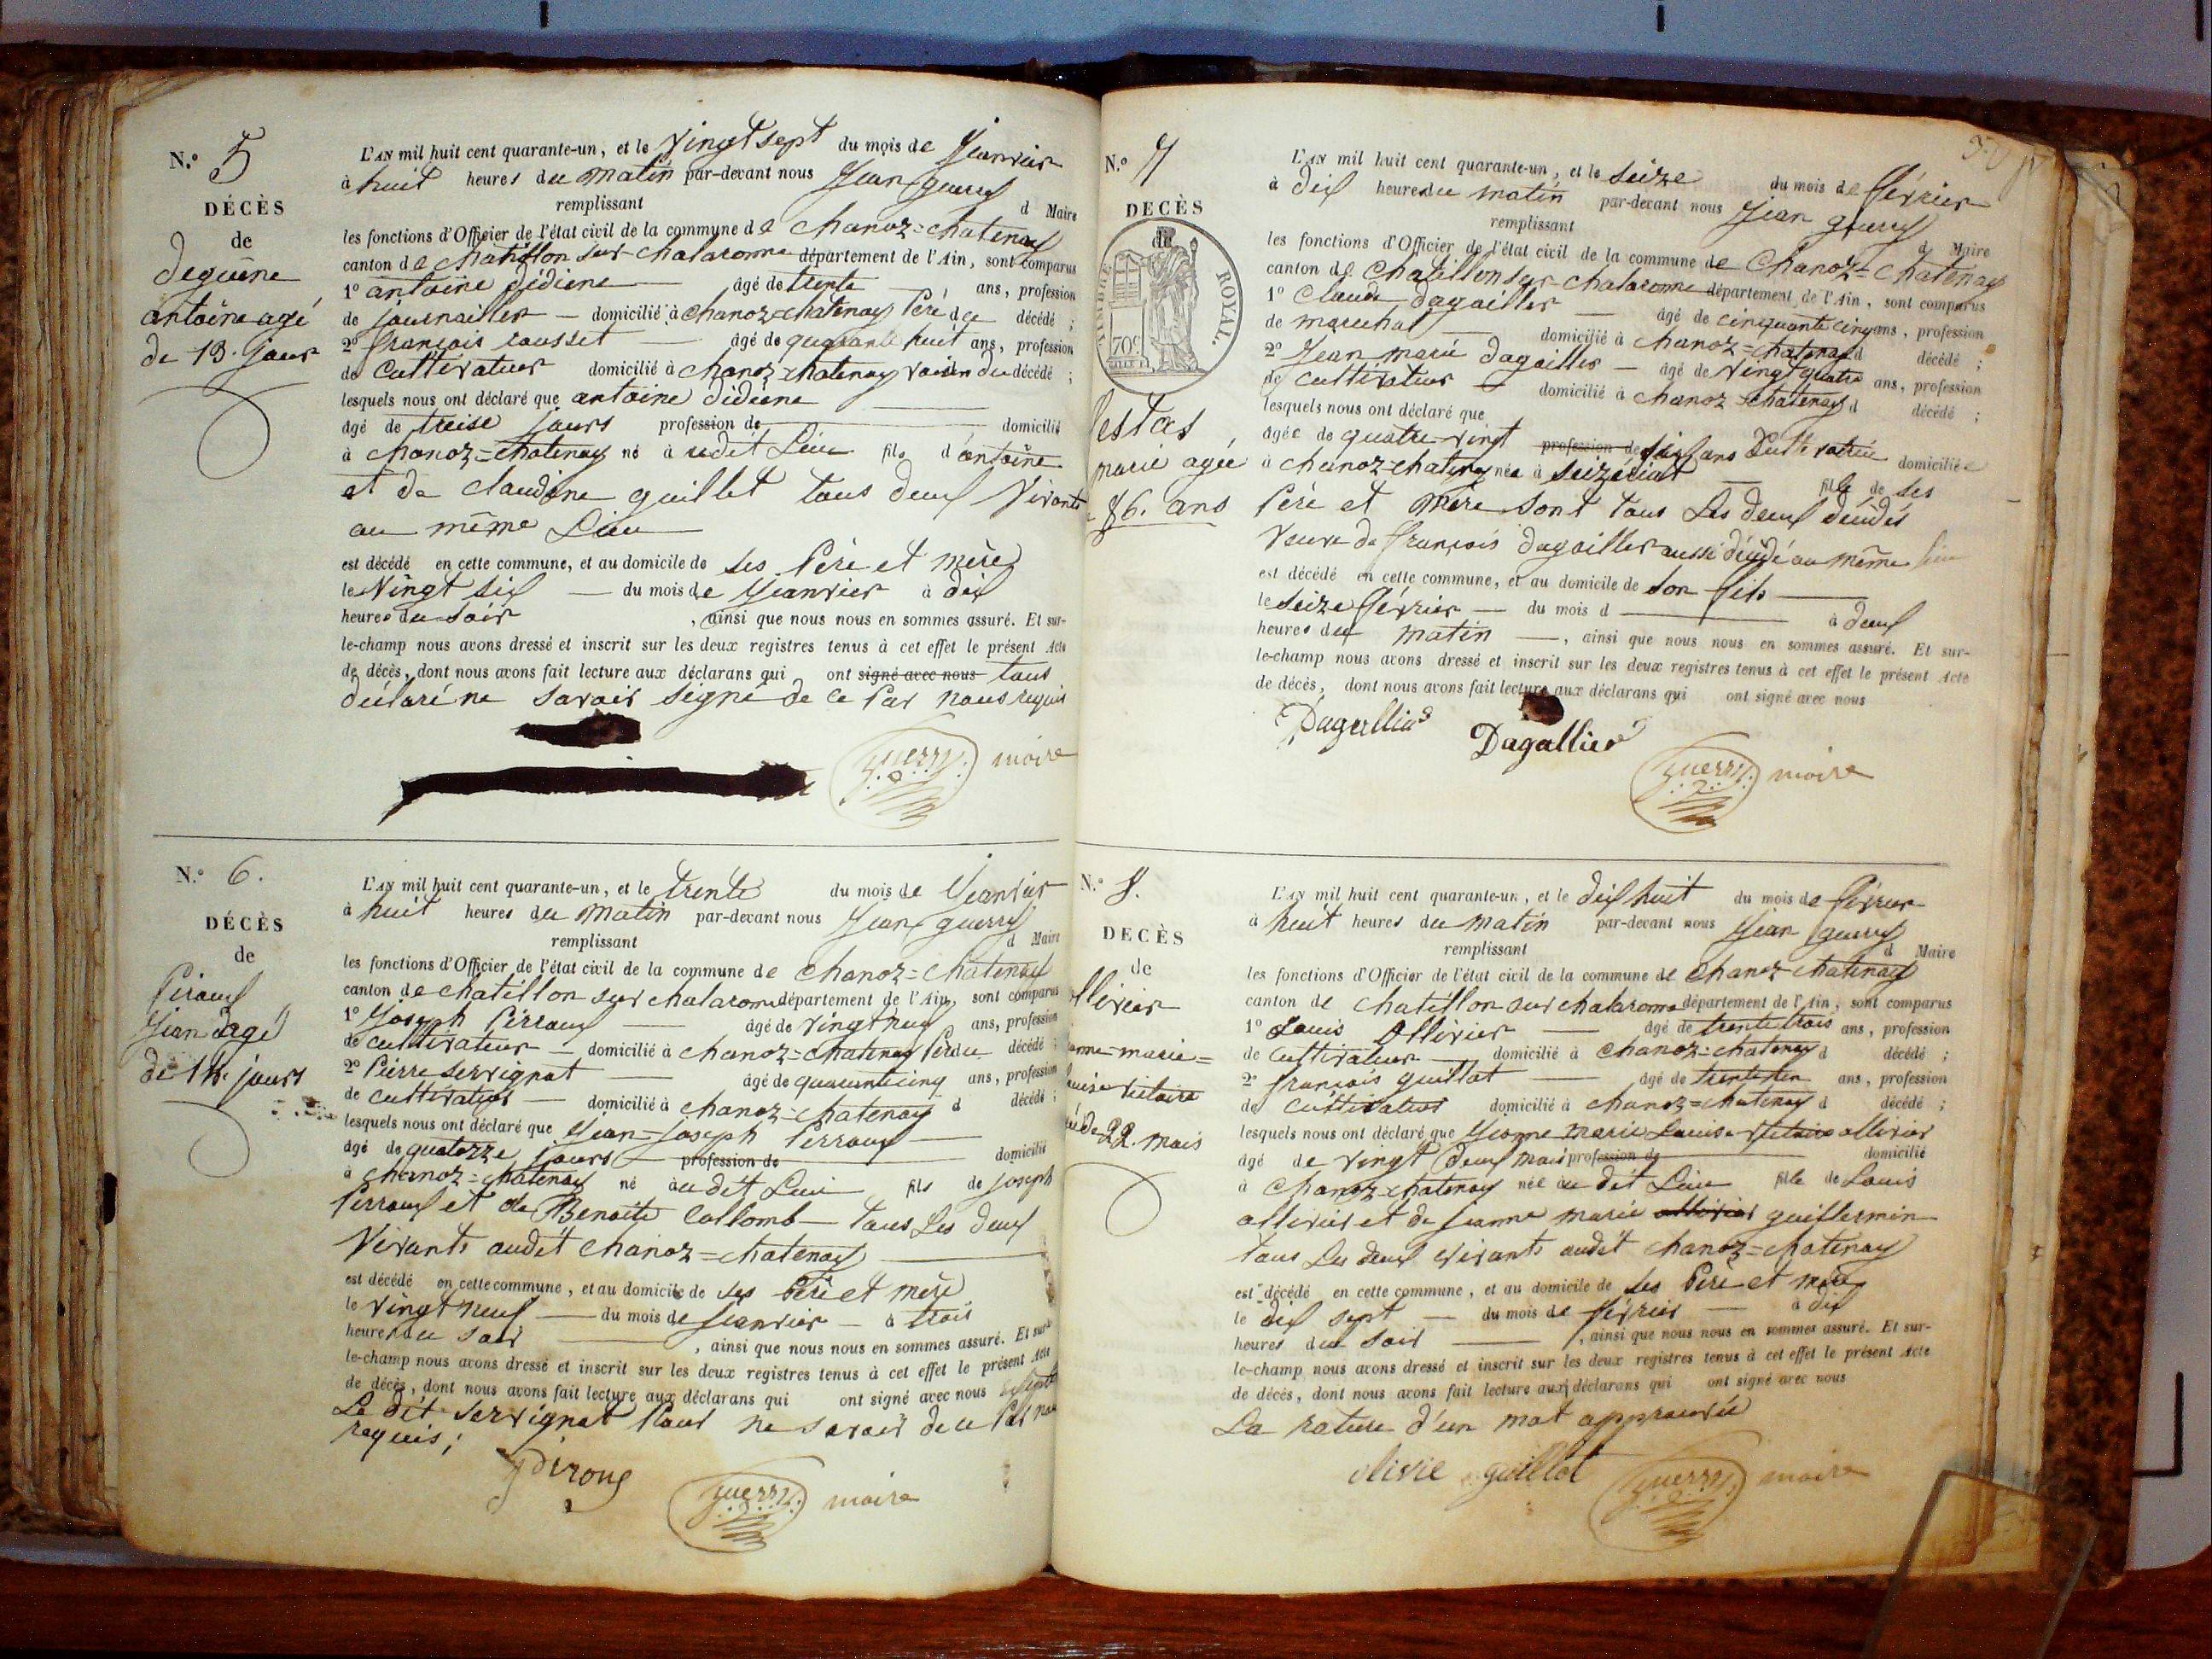 N.º 5
DÉCÈS
de
deguène
antoine agé
de 13. jours
L'AN mil huit cent quarante-un, et le Vingt sept du mois de Janvier
à huit heures du matin par-devant nous Jean guerry
remplissant d Maire
les fonctions d'Officier de l'état civil de la commune de Chanoz=chatenay
canton de Chatillon sur chalaronne département de l'Ain, sont comparus
1º antoine didiene âgé de trente ans, profession
de journaillier domicilié à Chanoz=chatenay Père du décédé ;
2º françois cousset âgé de quarante huit ans, profession
de Cultivateur domicilié à Chanoz=chatenay voisin du décédé ;
lesquels nous ont déclaré que antoine didiene
âgé de treise jours profession de domicilié
à Chanoz=chatenay né à udit Lieu fils d'antoine
et de claudine guillet tous deux Vivants
au même Lieu
est décédé en cette commune, et au domicile de ses Père et mère
le Vingt six du mois de Janvier à dix
heures du soir, ainsi que nous nous en sommes assuré. Et sur-
le-champ nous avons dressé et inscrit sur les deux registres tenus à cet effet le présent Acte
de décès, dont nous avons fait lecture aux déclarans qui ont signé avec nous tous
déclaré ne savoir signé de ce Par nous requis
guerry maire
N.º 6.
DÉCÈS
de
Piroux
Jean agé
de 14. jours
L'AN mil huit cent quarante-un, et le trente du mois de Janvier
à huit heures du matin par-devant nous Jean guerry
remplissant d Maire
les fonctions d'Officier de l'état civil de la commune de Chanoz=chatenay
canton de chatillon sur chalaronne département de l'Ain, sont comparus
1º Joseph Perroux âgé de Vingt neuf ans, profession
de cultivateur domicilié à chanoz=chatenay Père du décédé ;
2º Pierre servignat âgé de quarante cinq ans, profession
de cultivateur domicilié à chanoz=chatenay d décédé ;
lesquels nous ont déclaré que Jean=Joseph Perroux
âgé de quatorze jours profession de domicilié
à chanoz=chatenay né àu dit Lieu fils de joseph
Perroux et de Benoite Collomb tous Les deux
Vivants audit chanoz=chatenay
est décédé en cette commune, et au domicile de ses Père et mère
le Vingt neuf du mois de janvier à trois
heures du soir, ainsi que nous nous en sommes assuré. Et sur-
le-champ nous avons dressé et inscrit sur les deux registres tenus à cet effet le présent Acte
de décès, dont nous avons fait lecture aux déclarans qui ont signé avec nous
Le dit servignat Pour ne savoir de ce Par nous
requis ;
Piroux
guerry maire
N.º 7
DECÈS
de
TIMBRE ROYAL.
70c
lestas
marie agée
86. ans
L'AN mil huit cent quarante-un, et le seize du mois de février
à dix heures du matin par-devant nous Jean guerry
remplissant d Maire
les fonctions d'Officier de l'état civil de la commune de Chanoz=chatenay
canton de Chatillon sur chalaronne département de l'Ain, sont comparus
1º Claude dagaillier âgé de cinquante cinq ans, profession
de marechal domicilié à chanoz=chatenay d décédé ;
2º Jean marie dagaillier âgé de Vingt quatre ans, profession
de cultivateur domicilié à chanoz=chatenay d décédé ;
lesquels nous ont déclaré que
âgée de quatre vingt profession de six ans Cultivatrice domiciliée
à chanoz=chatenay née à seizériat fille de ses
Père et mère sont tous Les deux décédés
Veuve de françois dagaillier aussi décédé au même lieu
est décédé en cette commune, et au domicile de son fils
le seize février du mois d à deux
heures du matin, ainsi que nous nous en sommes assuré. Et sur-
le-champ nous avons dressé et inscrit sur les deux registres tenus à cet effet le présent Acte
de décès, dont nous avons fait lecture aux déclarans qui ont signé avec nous
Dagallier Dagallier
guerry maire
N.º 8.
DECÈS
de
ollivier
anne=marie=
Louise victoire
de 22. mois
L'AN mil huit cent quarante-un, et le dix huit du mois de février
à huit heures du matin par-devant nous Jean guerry
remplissant d Maire
les fonctions d'Officier de l'état civil de la commune de Chanoz=chatenay
canton de Chatillon sur chalaronne département de l'Ain, sont comparus
1º Louis Ollivier âgé de trente trois ans, profession
de Cultivateur domicilié à Chanoz=chatenay d décédé ;
2º françois guillat âgé de ans, profession
de cultivateur domicilié à chanoz=chatenay d décédé ;
lesquels nous ont déclaré que Jeanne marie Louise victoire ollivier
âgé de Vingt deux mois profession de domicilié
à Chanoz=chatenay née au dit Lieu fille de Louis
ollivier et de Jeanne marie ollivier guillermin
tous Les deux vivants audit chanoz=chatenay
est décédé en cette commune, et au domicile de ses Père et mère
le dix sept du mois de février à dix
heures du soir, ainsi que nous nous en sommes assuré. Et sur-
le-champ nous avons dressé et inscrit sur les deux registres tenus à cet effet le présent Acte
de décès, dont nous avons fait lecture aux déclarans qui ont signé avec nous
La rature d'un mot approuvée
olivie guillot
guerry maire